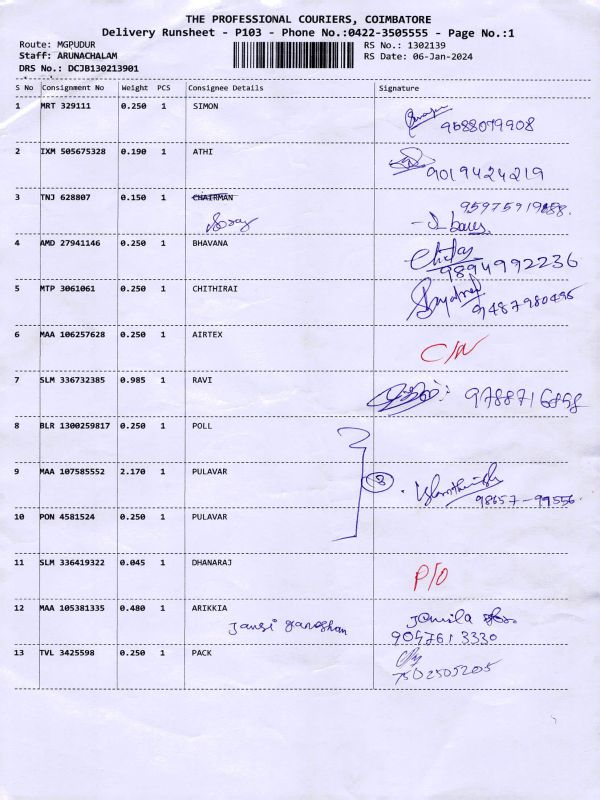 THE PROFESSIONAL COURIERS, COIMBATORE
Delivery Runsheet - P103 - Phone No.:0422-3505555 - Page No.:1
Route: MGPUDUR RS No.: 1302139
Staff: ARUNACHALAM RS Date: 06-Jan-2024
DRS No.: DCJB130213901
S No Consignment No Weight PCS Consignee Details Signature
1 MRT 329111 0.250 1 SIMON
9588099908
2 IXM 505675328 0.190 1 ATHI
9019424219
3 TNJ 628807 0.150 1 CHAIRMAN
4 AMD 27941146 0.250 1 BHAVANA
9894992236
5 MTP 3061061 0.250 1 CHITHIRAI
9487980495
6 MAA 106257628 0.250 1 AIRTEX
C/N
7 SLM 336732385 0.985 1 RAVI
9788716898
8 BLR 1300259817 0.250 1 POLL
9 MAA 107585552 2.170 1 PULAVAR
3
98657-99556
10 PON 4581524 0.250 1 PULAVAR
11 SLM 336419322 0.045 1 DHANARAJ
P/O
12 MAA 105381335 0.480 1 ARIKKIA
Jansi ganeshan Jamila
904761 3330
13 TVL 3425598 0.250 1 PACK
7502505205